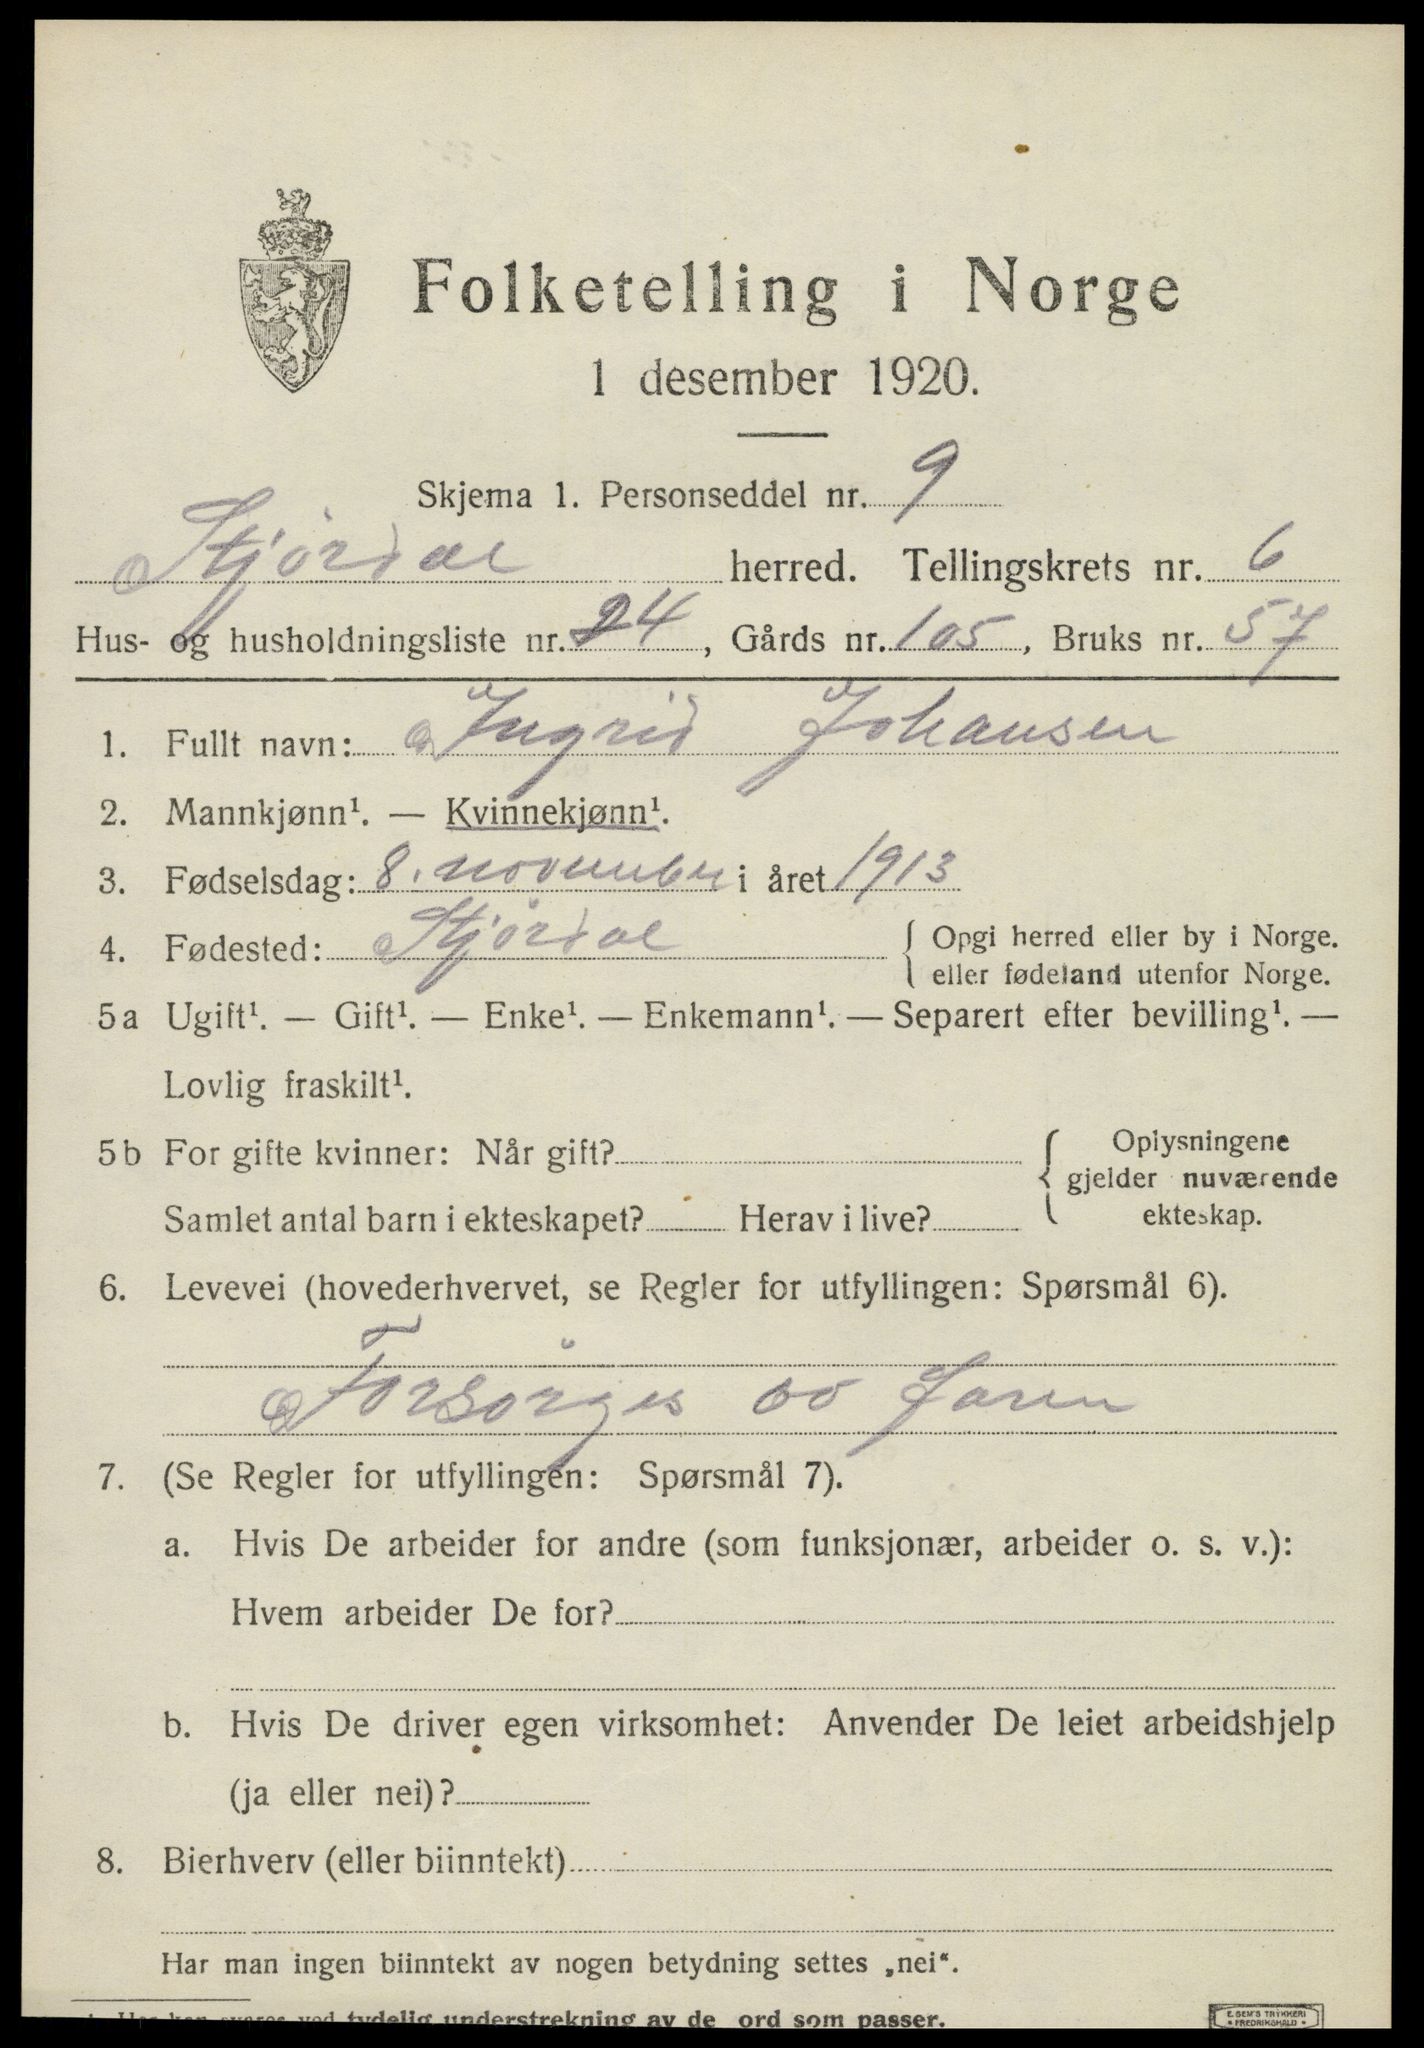 Folketelling i Norge
1 desember 1920.
Skjema 1. Personseddel nr. 9
Stjördal herred. Tellingskrets nr. 6
Hus- og husholdningsliste nr. 24, Gårds nr. 105, Bruks nr. 57
1. Fullt navn: Ingrid Johansen
2. Mannkjønn¹. — Kvinnekjønn¹.
3. Fødselsdag: 8. november i året 1913
4. Fødested: Stjördal { Opgi herred eller by i Norge.
eller fødeland utenfor Norge.
5a Ugift¹. — Gift¹. — Enke¹. — Enkemann¹. — Separert efter bevilling¹. —
Lovlig fraskilt¹.
5b For gifte kvinner: Når gift? { Oplysningene
gjelder nuværende
Samlet antal barn i ekteskapet? Herav i live? ekteskap.
6. Levevei (hovederhvervet, se Regler for utfyllingen: Spørsmål 6).
Forsörges av Faren
7. (Se Regler for utfyllingen: Spørsmål 7).
a. Hvis De arbeider for andre (som funksjonær, arbeider o. s. v.):
Hvem arbeider De for?
b. Hvis De driver egen virksomhet: Anvender De leiet arbeidshjelp
(ja eller nei)?
8. Bierhverv (eller biinntekt)
Har man ingen biinntekt av nogen betydning settes „nei“.
1 Her kan svares ved tydelig understrekning av de ord som passer.
E. SEM'S TRYKKERI
• FREDRIKSHALD •